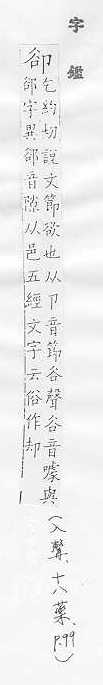 字鑑
卻
乞約切說文節欲也从卩音節谷聲谷音噱與
郤字異郤音隙从邑五經文字云俗作却
(入聲、十八藥、p.99)